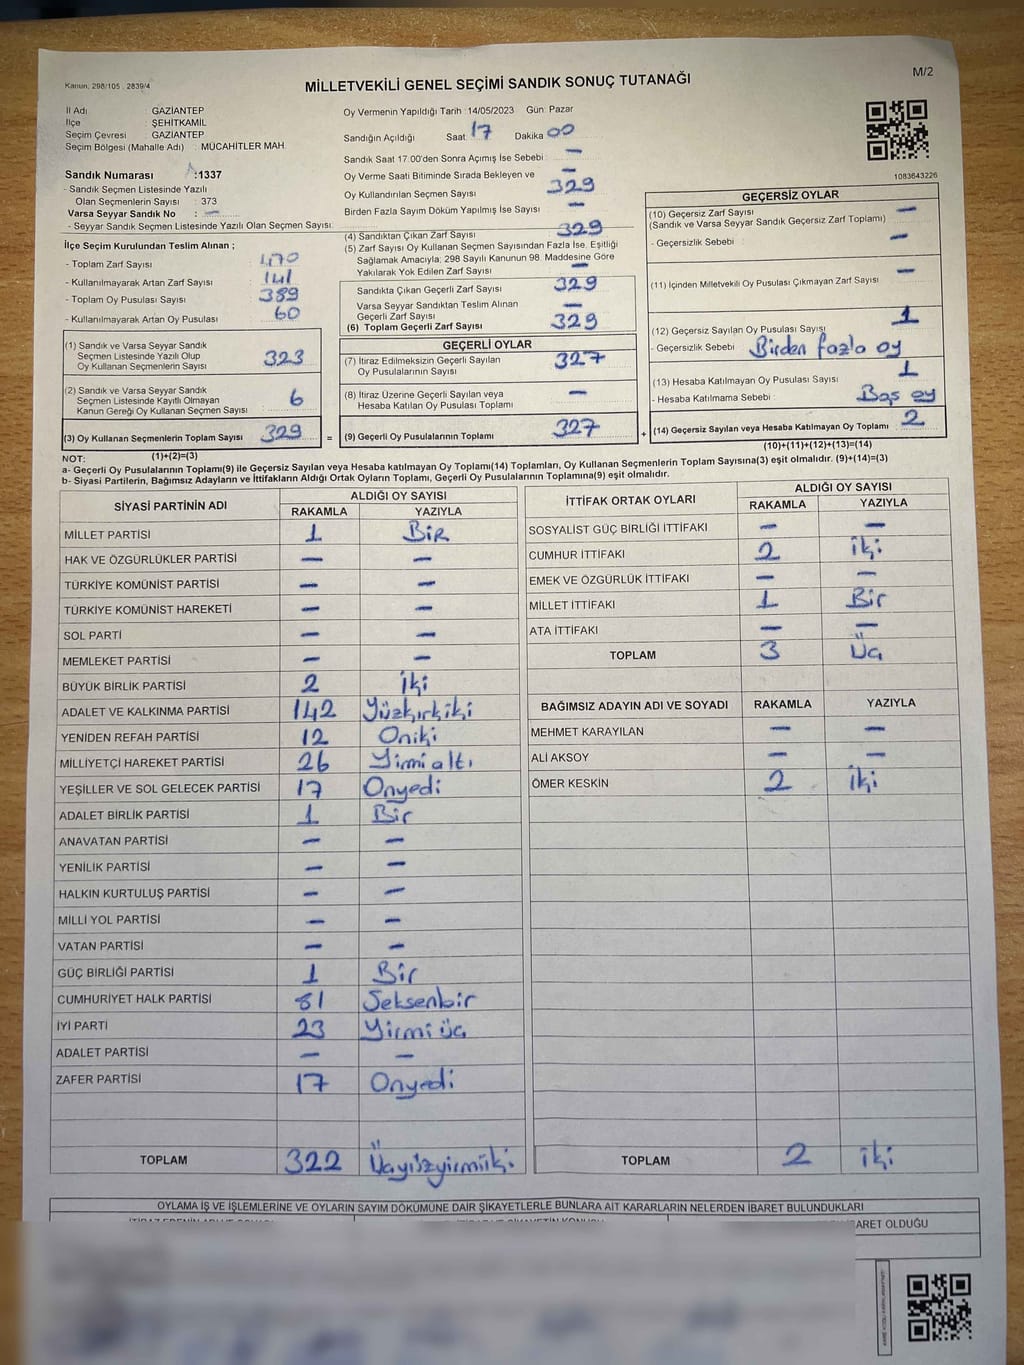 Kanun, 298/105 , 2839/4
M/2
MİLLETVEKİLİ GENEL SEÇİMİ SANDIK SONUÇ TUTANAĞI
İl Adı : GAZİANTEP
İlçe : ŞEHİTKAMİL
Seçim Çevresi : GAZİANTEP
Seçim Bölgesi (Mahalle Adı) : MÜCAHİTLER MAH.
Sandık Numarası :1337
- Sandık Seçmen Listesinde Yazılı
Olan Seçmenlerin Sayısı : 373
Varsa Seyyar Sandık No : —
- Seyyar Sandık Seçmen Listesinde Yazılı Olan Seçmen Sayısı:
İlçe Seçim Kurulundan Teslim Alınan ;
- Toplam Zarf Sayısı 470
- Kullanılmayarak Artan Zarf Sayısı 141
- Toplam Oy Pusulası Sayısı 389
- Kullanılmayarak Artan Oy Pusulası 60
(1) Sandık ve Varsa Seyyar Sandık
Seçmen Listesinde Yazılı Olup
Oy Kullanan Seçmenlerin Sayısı 323
(2) Sandık ve Varsa Seyyar Sandık
Seçmen Listesinde Kayıtlı Olmayan
Kanun Gereği Oy Kullanan Seçmen Sayısı 6
(3) Oy Kullanan Seçmenlerin Toplam Sayısı 329 =
Oy Vermenin Yapıldığı Tarih : 14/05/2023 Gün: Pazar
Sandığın Açıldığı Saat: 17 Dakika: 00
Sandık Saat 17:00'den Sonra Açımış İse Sebebi : —
Oy Verme Saati Bitiminde Sırada Bekleyen ve —
Oy Kullandırılan Seçmen Sayısı 329
Birden Fazla Sayım Döküm Yapılmış İse Sayısı —
(4) Sandıktan Çıkan Zarf Sayısı 329
(5) Zarf Sayısı Oy Kullanan Seçmen Sayısından Fazla İse, Eşitliği
Sağlamak Amacıyla; 298 Sayılı Kanunun 98. Maddesine Göre
Yakılarak Yok Edilen Zarf Sayısı —
Sandıkta Çıkan Geçerli Zarf Sayısı 329
Varsa Seyyar Sandıktan Teslim Alınan
Geçerli Zarf Sayısı —
(6) Toplam Geçerli Zarf Sayısı 329
GEÇERLİ OYLAR
(7) İtiraz Edilmeksizin Geçerli Sayılan
Oy Pusulalarının Sayısı 327
(8) İtiraz Üzerine Geçerli Sayılan veya
Hesaba Katılan Oy Pusulası Toplamı —
(9) Geçerli Oy Pusulalarının Toplamı 327 +
1083643226
GEÇERSİZ OYLAR
(10) Geçersiz Zarf Sayısı —
(Sandık ve Varsa Seyyar Sandık Geçersiz Zarf Toplamı)
- Geçersizlik Sebebi : —
(11) İçinden Milletvekili Oy Pusulası Çıkmayan Zarf Sayısı —
(12) Geçersiz Sayılan Oy Pusulası Sayısı 1
- Geçersizlik Sebebi : Birden fazla oy
(13) Hesaba Katılmayan Oy Pusulası Sayısı 1
- Hesaba Katılmama Sebebi : Boş oy
(14) Geçersiz Sayılan veya Hesaba Katılmayan Oy Toplamı 2
NOT: (1)+(2)=(3) (10)+(11)+(12)+(13)=(14)
a- Geçerli Oy Pusulalarının Toplamı(9) ile Geçersiz Sayılan veya Hesaba katılmayan Oy Toplamı(14) Toplamları, Oy Kullanan Seçmenlerin Toplam Sayısına(3) eşit olmalıdır. (9)+(14)=(3)
b- Siyasi Partilerin, Bağımsız Adayların ve İttifakların Aldığı Ortak Oyların Toplamı, Geçerli Oy Pusulalarının Toplamına(9) eşit olmalıdır.
SİYASİ PARTİNİN ADI ALDIĞI OY SAYISI
RAKAMLA YAZIYLA
MİLLET PARTİSİ 1 Bir
HAK VE ÖZGÜRLÜKLER PARTİSİ — —
TÜRKİYE KOMÜNİST PARTİSİ — —
TÜRKİYE KOMÜNİST HAREKETİ — —
SOL PARTİ — —
MEMLEKET PARTİSİ — —
BÜYÜK BİRLİK PARTİSİ 2 İki
ADALET VE KALKINMA PARTİSİ 142 Yüzkırkiki
YENİDEN REFAH PARTİSİ 12 Oniki
MİLLİYETÇİ HAREKET PARTİSİ 26 Yirmialtı
YEŞİLLER VE SOL GELECEK PARTİSİ 17 Onyedi
ADALET BİRLİK PARTİSİ 1 Bir
ANAVATAN PARTİSİ — —
YENİLİK PARTİSİ — —
HALKIN KURTULUŞ PARTİSİ — —
MİLLİ YOL PARTİSİ — —
VATAN PARTİSİ — —
GÜÇ BİRLİĞİ PARTİSİ 1 Bir
CUMHURİYET HALK PARTİSİ 81 Seksenbir
İYİ PARTİ 23 Yirmi üç
ADALET PARTİSİ — —
ZAFER PARTİSİ 17 Onyedi
TOPLAM 322 Üçyüzyirmiiki
İTTİFAK ORTAK OYLARI ALDIĞI OY SAYISI
RAKAMLA YAZIYLA
SOSYALİST GÜÇ BİRLİĞİ İTTİFAKI — —
CUMHUR İTTİFAKI 2 İki
EMEK VE ÖZGÜRLÜK İTTİFAKI — —
MİLLET İTTİFAKI 1 Bir
ATA İTTİFAKI — —
TOPLAM 3 Üç
BAĞIMSIZ ADAYIN ADI VE SOYADI RAKAMLA YAZIYLA
MEHMET KARAYILAN — —
ALİ AKSOY — —
ÖMER KESKİN 2 İki
TOPLAM 2 İki
OYLAMA İŞ VE İŞLEMLERİNE VE OYLARIN SAYIM DÖKÜMÜNE DAİR ŞİKAYETLERLE BUNLARA AİT KARARLARIN NELERDEN İBARET BULUNDUKLARI
İBARET OLDUĞU